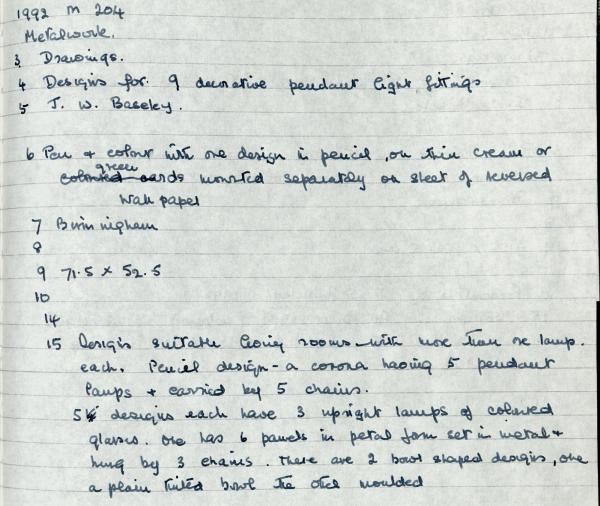 1992 M 204
Metalwork.
3 Drawings.
4 Designs for 9 decorative pendant light fittings
5 J. W. Baseley.
6 Pen + colour with one design in pencil, on thin cream or
green
coloured cards mounted separately on sheet of reversed
wall paper
7 Birmingham
8
9 71.5 x 52.5
10
14
15 Designs suitable living rooms with more than one lamp
each. Pencil design - a corona having 5 pendant
lamps + carried by 5 chains.
5 designs each have 3 upright lamps of coloured
glasses. One has 6 panels in petal form set in metal +
hung by 3 chains. There are 2 bowl shaped designs, one
a plain tinted bowl the other moulded